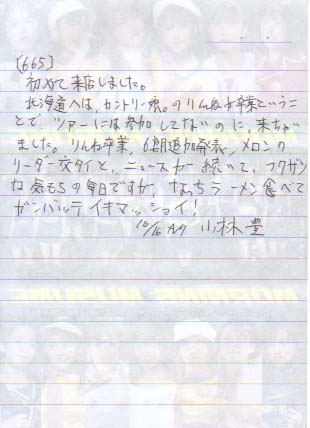 [665]
初めて来店しました。
北海道へは、カントリー娘。のりんね卒業というこ
とで、ツアーには参加してないのに、来ちゃい
ました。りんね卒業、6期追加発表、メロンの
リーダー交タイと、ニュースが続いて、フクザツ
な気もちの毎日ですが、なっちラーメン食べて
ガンバッテイキマッショイ!
小林豊